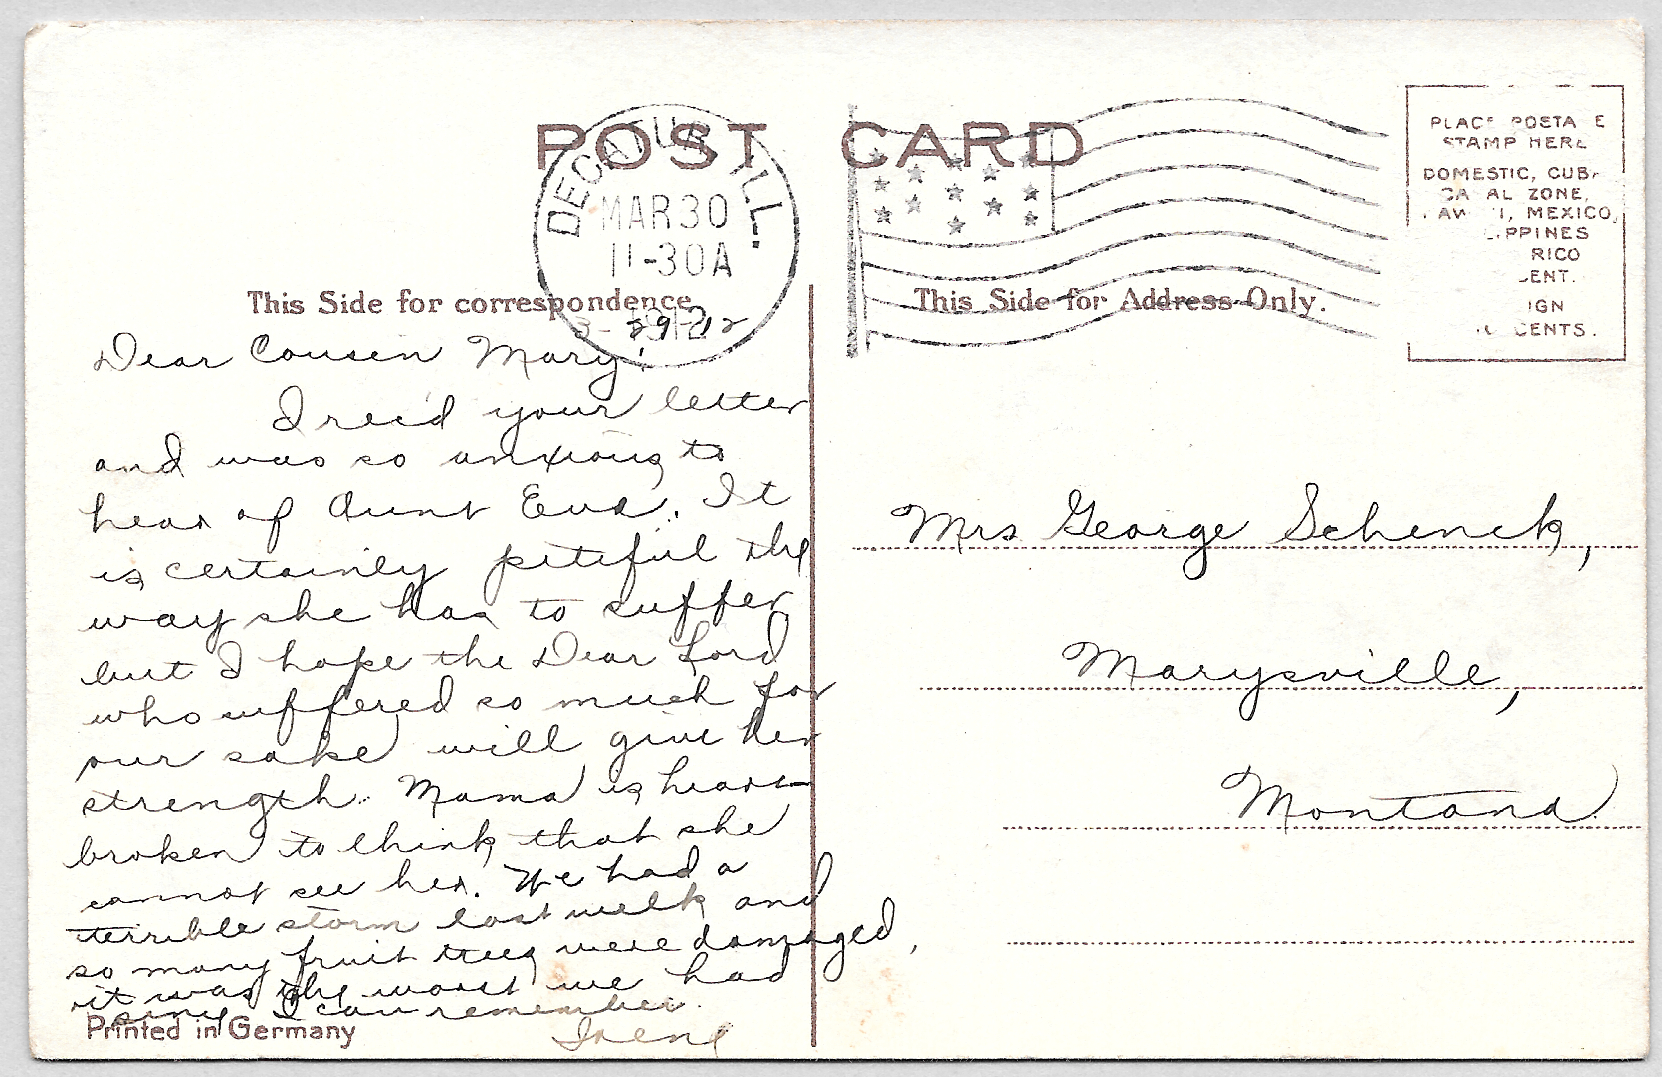 POST CARD
DECATUR ILL.
MAR 30
11-30A
1912
PLACE POSTA E
STAMP HERE
DOMESTIC, CUB
CA AL ZONE,
AW I, MEXICO,
IPPINES
RICO
CENT.
IGN
CENTS.
This Side for correspondence
This Side for Address Only.
3-29-12
Dear Cousin Mary!
I rec'd your letter
and was so anxious to
hear of Aunt Eva. It
is certainly pitiful the
way she has to suffer
but I hope the Dear Lord
who suffered so much for
our sake will give her
strength. Mama is heart
broken to think that she
cannot see her. We had a
terrible storm last week and
so many fruit trees were damaged,
it was the worst we had
since I can remember.
Irene
Mrs George Schenck,
Marysville,
Montana.
Printed in Germany